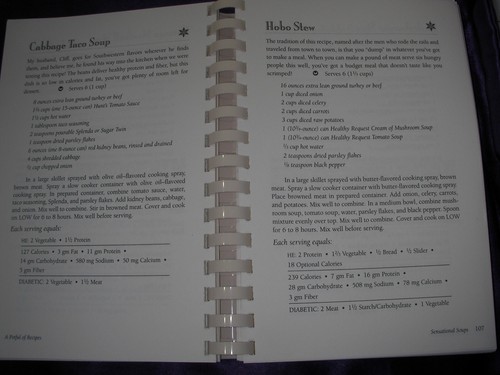 Cabbage Taco Soup
My husband, Cliff, goes for Southwestern flavors wherever he finds
them, and believe me, he found his way into the kitchen when we were
testing this recipe! The beans deliver healthy protein and fiber, but this
dish is so low in calories and fat, you've got plenty of room left for
dessert. Serves 8 (1 cup)
8 ounces extra lean ground turkey or beef
1¾ cups (one 15-ounce can) Hunt's Tomato Sauce
1½ cups hot water
1 tablespoon taco seasoning
2 teaspoons pourable Splenda or Sugar Twin
1 teaspoon dried parsley flakes
6 ounces (one 8-ounce can) red kidney beans, rinsed and drained
4 cups shredded cabbage
½ cup chopped onion
In a large skillet sprayed with olive oil–flavored cooking spray,
brown meat. Spray a slow cooker container with olive oil–flavored
cooking spray. In prepared container, combine tomato sauce, water,
taco seasoning, Splenda, and parsley flakes. Add kidney beans, cabbage,
and onion. Mix well to combine. Stir in browned meat. Cover and cook
on LOW for 6 to 8 hours. Mix well before serving.
Each serving equals:
HE: 2 Vegetable • 1½ Protein
127 Calories • 3 gm Fat • 11 gm Protein •
14 gm Carbohydrate • 380 mg Sodium • 50 mg Calcium •
3 gm Fiber
DIABETIC: 2 Vegetable • 1½ Meat
A Potful of Recipes
Hobo Stew
The tradition of this recipe, named after the men who rode the rails and
traveled from town to town, is that you "dump" in whatever you've got
to make a meal. When you can make a pound of meat serve six hungry
people this well, you've got a budget meal that doesn't taste like you
scrimped! Serves 6 (1½ cups)
16 ounces extra lean ground turkey or beef
1 cup diced onion
2 cups diced celery
2 cups diced carrots
3 cups diced raw potatoes
1 (10¾-ounce) can Healthy Request Cream of Mushroom Soup
1 (10¾-ounce) can Healthy Request Tomato Soup
½ cup hot water
2 teaspoons dried parsley flakes
¼ teaspoon black pepper
In a large skillet sprayed with butter-flavored cooking spray, brown
meat. Spray a slow cooker container with butter-flavored cooking spray.
Place browned meat in prepared container. Add onion, celery, carrots,
and potatoes. Mix well to combine. In a medium bowl, combine mush-
room soup, tomato soup, water, parsley flakes, and black pepper. Spoon
mixture evenly over top. Mix well to combine. Cover and cook on LOW
for 6 to 8 hours. Mix well before serving.
Each serving equals:
HE: 2 Protein • 1½ Vegetable • ½ Bread • ½ Slider •
18 Optional Calories
239 Calories • 7 gm Fat • 16 gm Protein •
28 gm Carbohydrate • 508 mg Sodium • 78 mg Calcium •
3 gm Fiber
DIABETIC: 2 Meat • 1½ Starch/Carbohydrate • 1 Vegetable
Sensational Soups